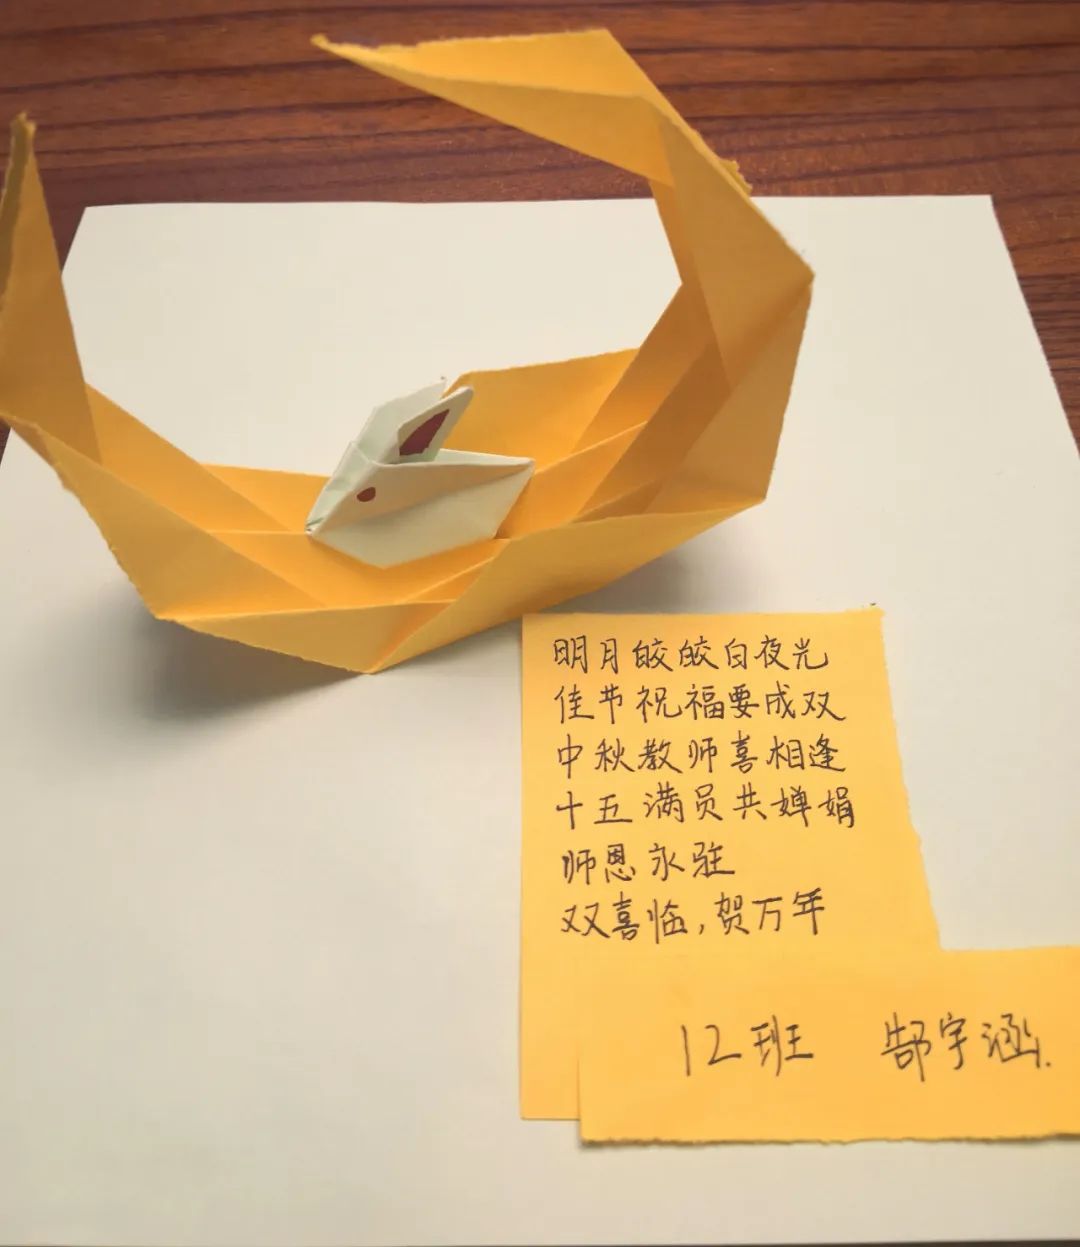 明月皎皎白夜光
佳节祝福要成双
中秋教师喜相逢
十五满员共婵娟
师恩永驻
双喜临,贺万年
12班 郜宇涵.